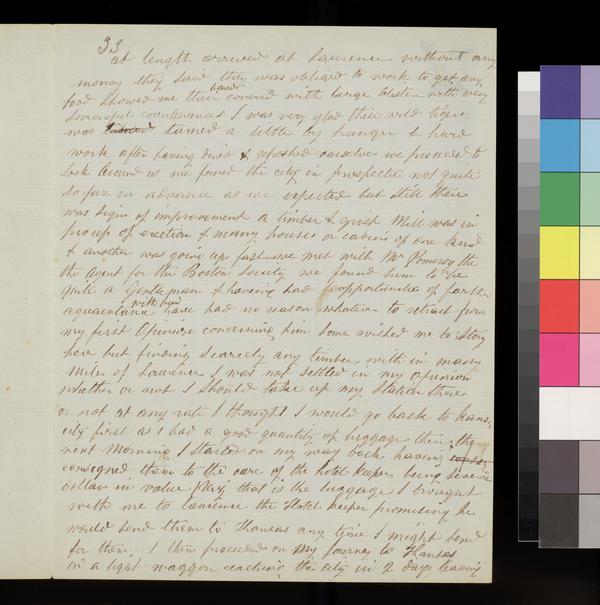 33
at length arrived at Laurence without any
money they said they was obliard to work to get any
food showed me their hands covered with large blisters with very
sorrowful countenances I was very glad their wild tigers
was tamed a little by hunger & hard
work after having dined & refreshed ourselves we proceeded to
look around us we found the city in prospective not quite
so far in advance as we expected but still there
was signs of improvement a timber & grist Mill was in
process of erection & many houses or cabins of one kind
& another was going up fast we met with Mr Pomeroy the
the Agent for the Boston Society we found him to be
quite a Gentleman & having had opportunities of farther
aquaintance with him have had no reason whatever to retract from
my first Opinion concerning him some wished me to Stay
here but finding scarcely any timber with in many
Miles of Laurence I was not settled in my opinion
whether or not I should take up my Station there
or not at any rate I thought I would go back to Kansas
city first as I had a good quantity of luggage there the
next Morning I started on my way back having
consigned them to the care of the hotel keeper being several
dollars in value that is the luggage I brought
with me to Laurence the Hotel keeper promising he
would send them to Kansas any time I might send
for them I then proceeded on My Journey to Kansas
in a light waggon reaching the city in 2 days leaving